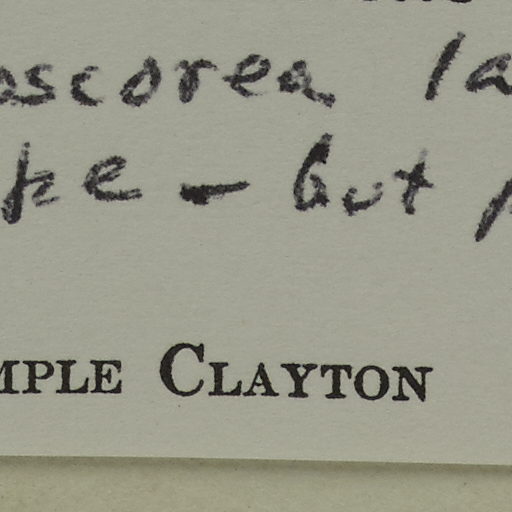 oscorea la
pe - but p
MPLE CLAYTON